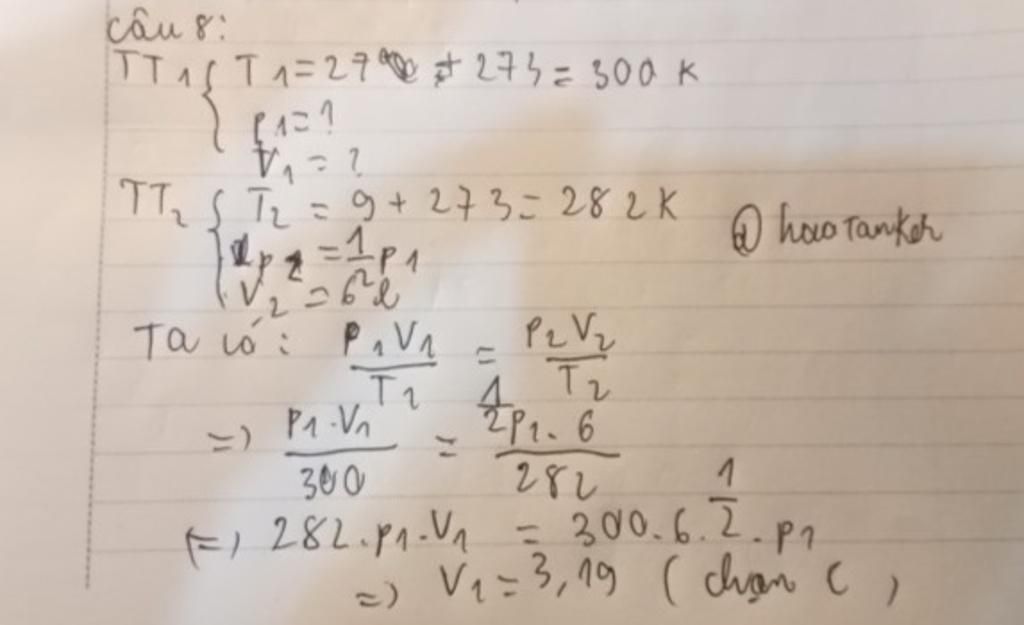 Câu 8:
TT1 { T1 = 27 + 273 = 300 K
p1 = ?
V1 = ?
TT2 { T2 = 9 + 273 = 282 K
p2 = 1/2 p1
V2 = 6 l
@haotankch
Ta có: p1V1/T2 = p2V2/T2
=) p1.V1/300 = 1/2 p1.6/282
(=) 282.p1.V1 = 300.6.1/2.p1
=) V1 = 3,19 (chọn C)